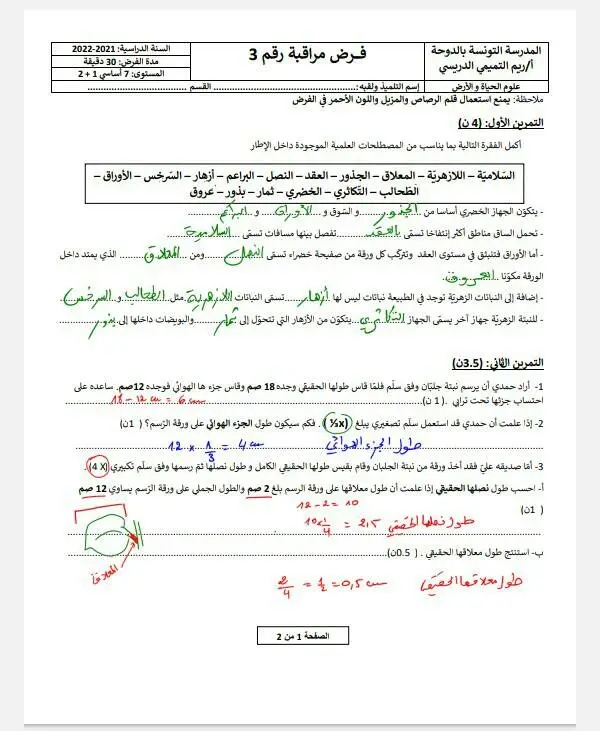 المدرسة التونسة بالدوحة
أ/ريم التميمي الدريسي
علوم الحياة و الأرض
فـرض مراقبة رقم 3
السنة الدراسية: 2021-2022
مدة الفرض: 30 دقيقة
المستوى: 7 أساسي 1 + 2
إسم التلميذ ولقبه:........................ القسم ........................
ملاحظة: يمنع استعمال قلم الرصاص والمزيل واللون الأحمر في الفرض
التمرين الأول: (4 ن)
أكمل الفقرة التالية بما يناسب من المصطلحات العلمية الموجودة داخل الإطار
السّلاميّة – اللازهريّة – المعلاق – الجذور – العقد – النصل – البراعم – أزهار – السّرخس – الأوراق –
الطّحالب – التّكاثري – الخضري – ثمار – بذور – عروق
- يتكوّن الجهاز الخضري أساسا من الجذور و السّوق و الأوراق و البراعم
- تحمل الساق مناطق أكثر إنتفاخا تسمّى بالعقد تفصل بينها مسافات تسمّى السلامية
- أما الأوراق فتنبثق في مستوى العقد وتتركّب كل ورقة من صفيحة خضراء تسمّى النصل ومن المعلاق الذي يمتد داخل
الورقة مكوّنا العروق
- إضافة إلى النباتات الزهريّة توجد في الطبيعة نباتات ليس لها أزهار تسمّى النباتات اللازهرية مثل الطحالب و السرخس
- للنبتة الزهريّة جهاز آخر يسمّى الجهاز التكاثري يتكوّن من الأزهار التي تتحوّل إلى ثمار والبويضات داخلها إلى بذور
التمرين الثاني: (3.5ن)
1- أراد حمدي أن يرسم نبتة جلبّان وفق سلّم فلمّا قاس طولها الحقيقي وجده 18 صم وقاس جزء ها الهوائي فوجده 12صم. ساعده على
احتساب جزئها تحت ترابي . (1 ن) 18 - 12 cm = 6 cm
2- إذا علمت أن حمدي قد استعمل سلّم تصغيري يبلغ (⅓x) . فكم سيكون طول الجزء الهوائي على ورقة الرّسم؟ ( 1ن)
طول الجزء الهوائي 12 x 1/3 = 4 cm
3- أمّا صديقه عليّ فقد أخذ ورقة من نبتة الجلبان وقام بقيس طولها الحقيقي الكامل و طول نصلها ثمّ رسمها وفق سلّم تكبيري (4 X).
أ- احسب طول نصلها الحقيقي إذا علمت أن طول معلاقها على ورقة الرسم بلغ 2 صم والطول الجملي على ورقة الرّسم يساوي 12 صم
( 1ن) 12 - 2 = 10
طول نصلها الحقيقي 10 x 1/4 = 2,5 cm
المعلاق
ب- استنتج طول معلاقها الحقيقي . ( 0.5ن)
طول معلاقها الحقيقي 2/4 = 1/2 = 0,5 cm
الصفحة 1 من 2